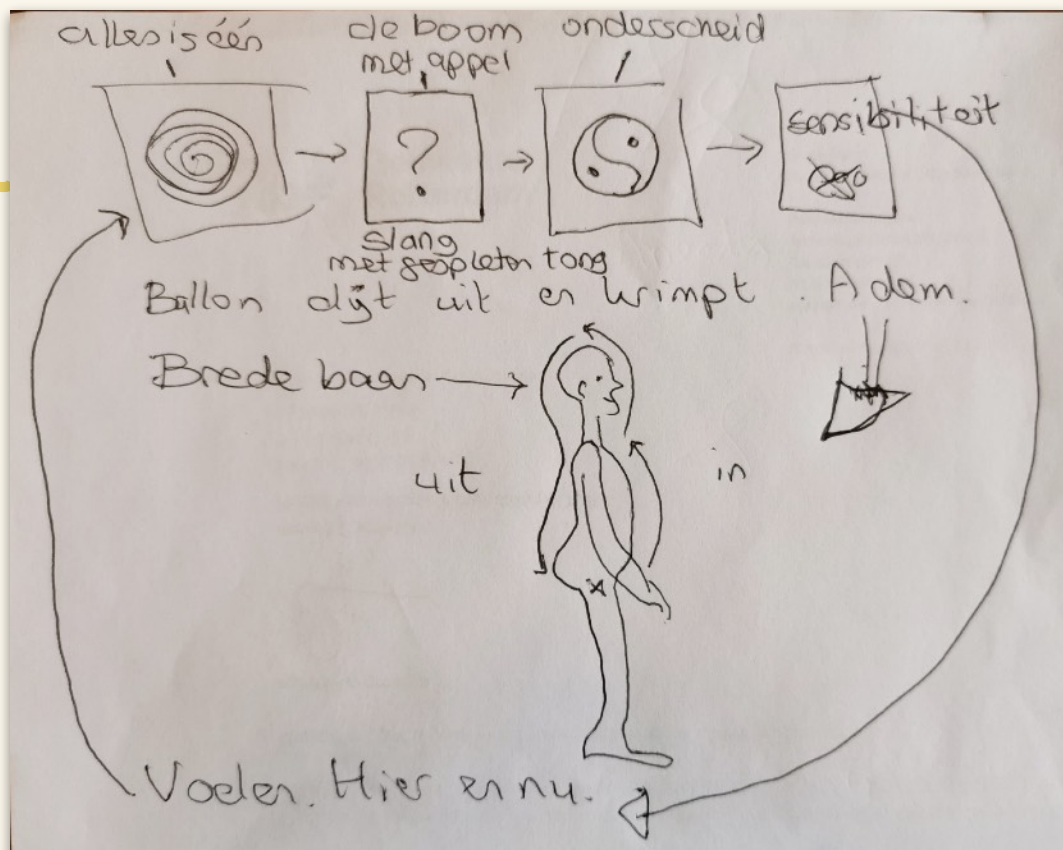 alles is één
de boom
met appel
onderscheid
?
sensibiliteit
slang
met gespleten tong
Ballon dijt uit en krimpt. Adem.
Brede baan
uit
in
Voelen. Hier en nu.